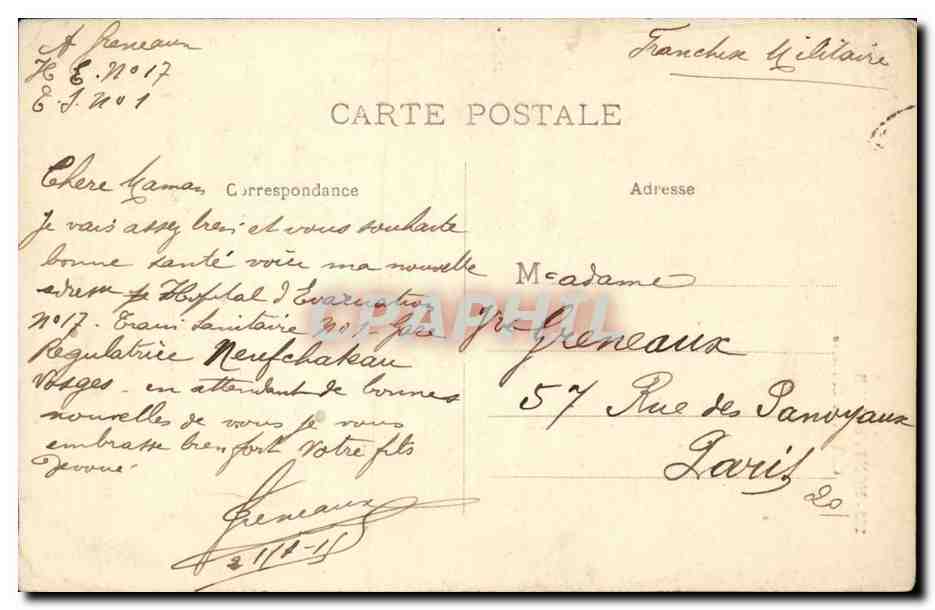 A Greneaux
H E. No 17
E. S. No 1
Franchise Militaire
CARTE POSTALE
Correspondance
Adresse
Chere Maman
Je vais assez bien et vous souhaite
bonne santé voici ma nouvelle
adresse Hopital d'Evacuation
No 17. Train Sanitaire No 1 Gare
Regulatrice Neufchateau
Vosges. en attendant de bonnes
nouvelles de vous je vous
embrasse bien fort Votre fils
devoué
Greneaux
Madame
Vve Greneaux
57 Rue des Panoyaux
Paris
20
CPAPHIL